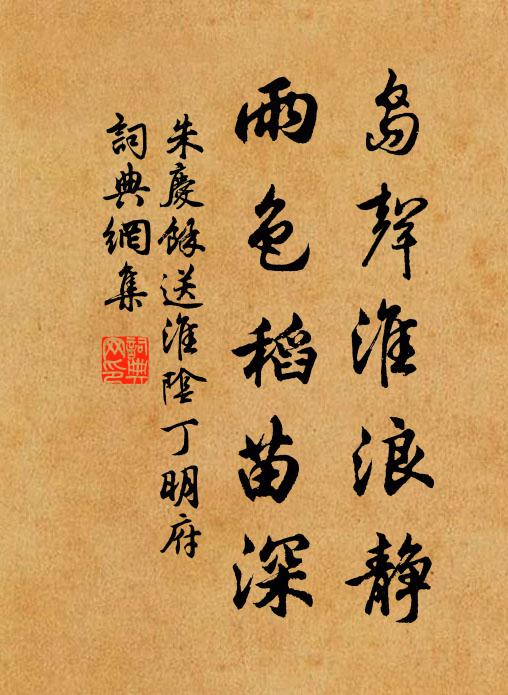 島聲淮浪靜
雨色稻苗深
朱慶餘送淮陰丁明府
詞典網集
詞典網印